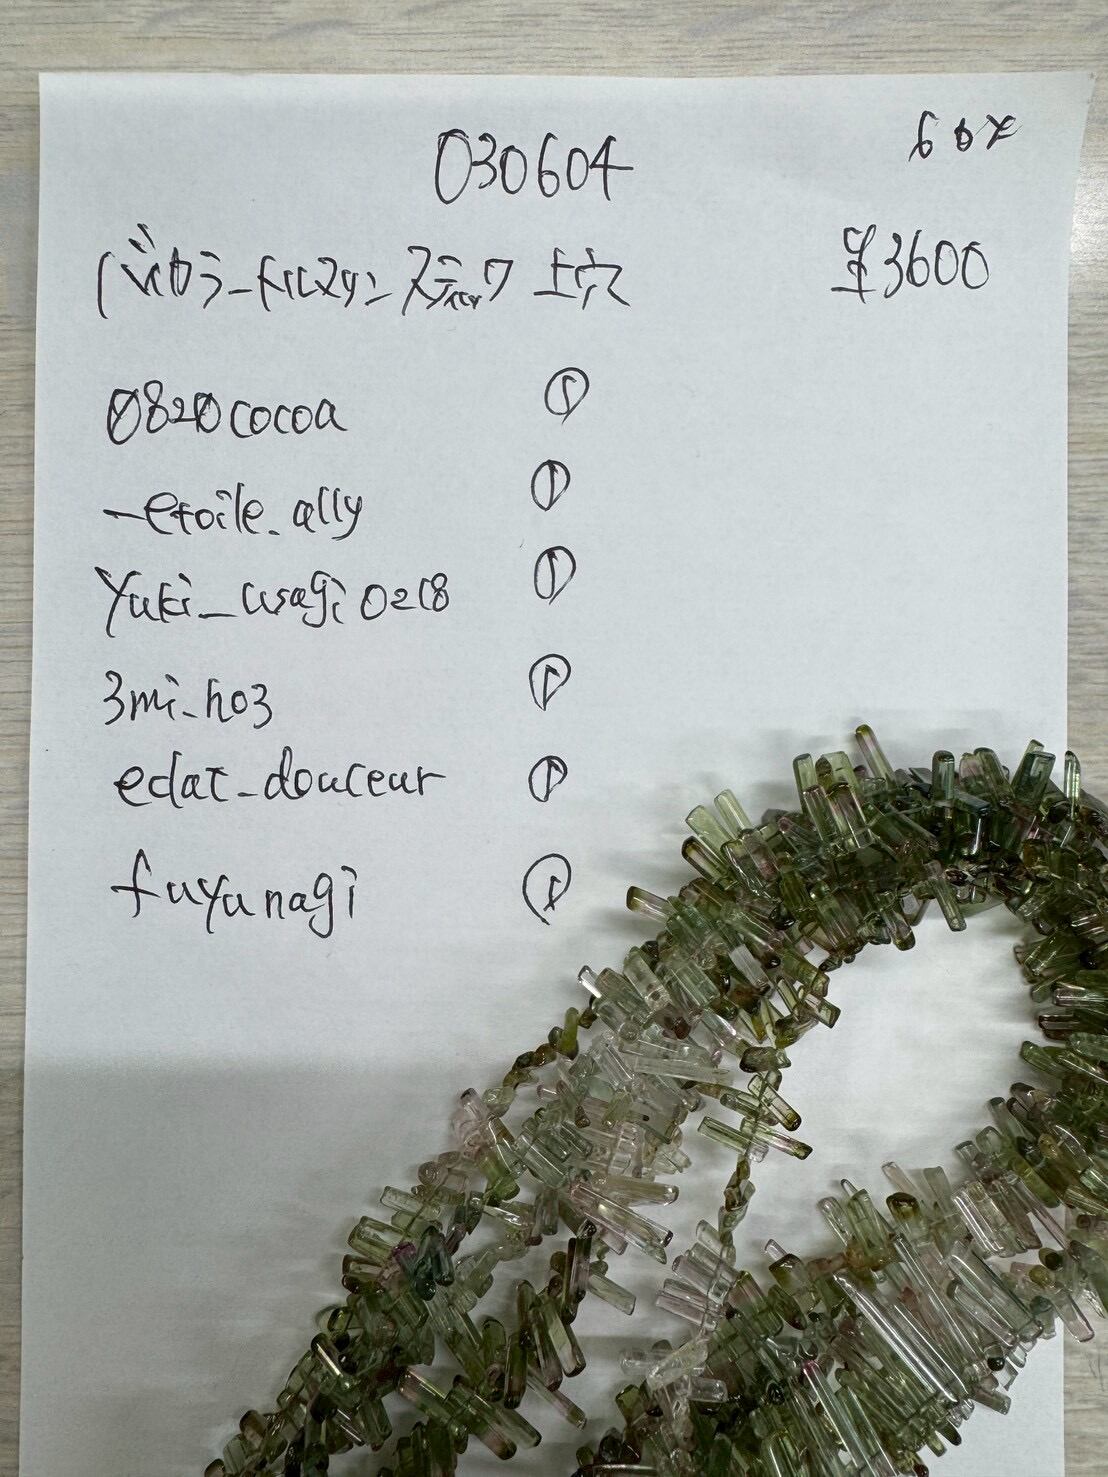 030604
60%
バイカラートルマリン スティック 上穴 ¥3600
0820cocoa ①
_etoile_ally ①
yuki_usagi0218 ①
3mi_ho3 ①
eclat_douceur ①
fuyunagi ①